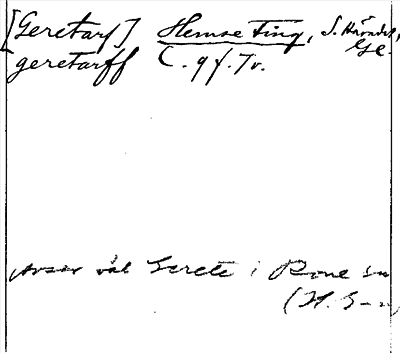 [Geretarf] Hemse ting, S. Häradet,
Gl.
geretarff C. 9 f. 7v.
Avser väl Gerete i Rone sn
(H. G-n)